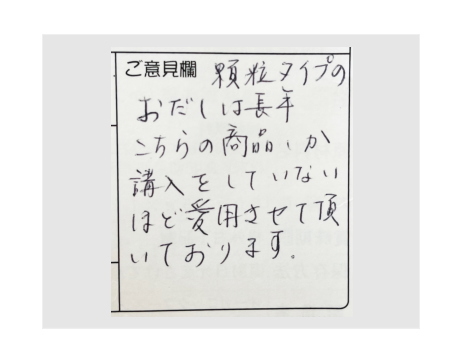 ご意見欄 顆粒タイプの
おだしは長年
こちらの商品しか
講入をしていない
ほど愛用させて頂
いております。